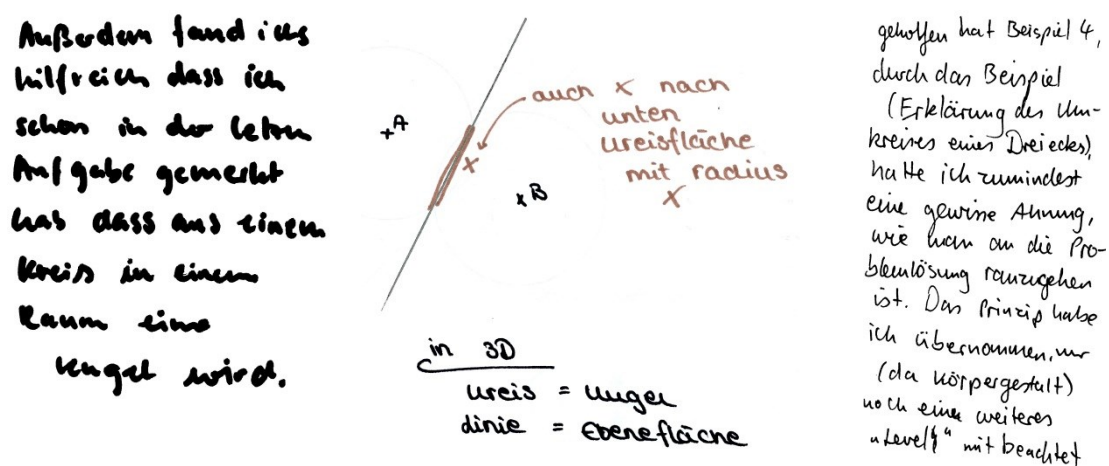 Außerdem fand ich
hilfreich dass ich
schon in der letzen
Aufgabe gemerkt
hab dass aus einem
Kreis in einem
Raum eine
Kugel wird.
A
B
auch x nach
unten
Kreisfläche
mit radius
x
x
in 3D
Kreis = Kugel
Linie = Ebenefläche
geholfen hat Beispiel 4,
durch das Beispiel
(Erklärung des Um-
kreises eines Dreiecks),
hatte ich zumindest
eine gewisse Ahnung,
wie man an die Pro-
blemlösung ranzugehen
ist. Das Prinzip habe
ich übernommen, nur
(da Körpergestalt)
noch ein weiteres
"Level" mit beachtet